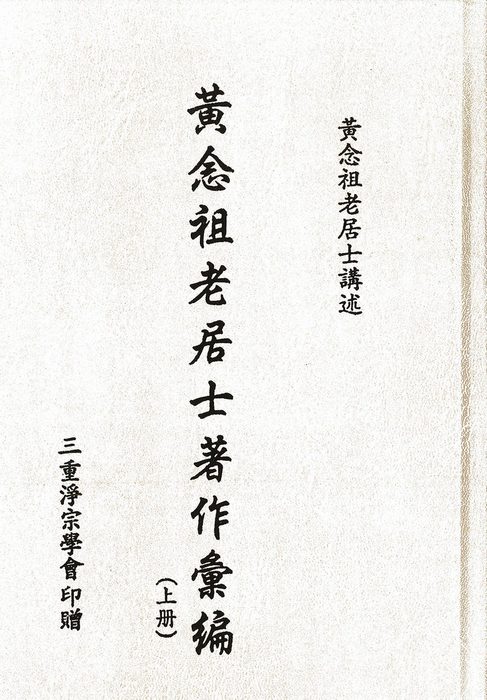 黃念祖老居士講述
黃念祖老居士著作彙編
(上册)
三重淨宗學會印贈